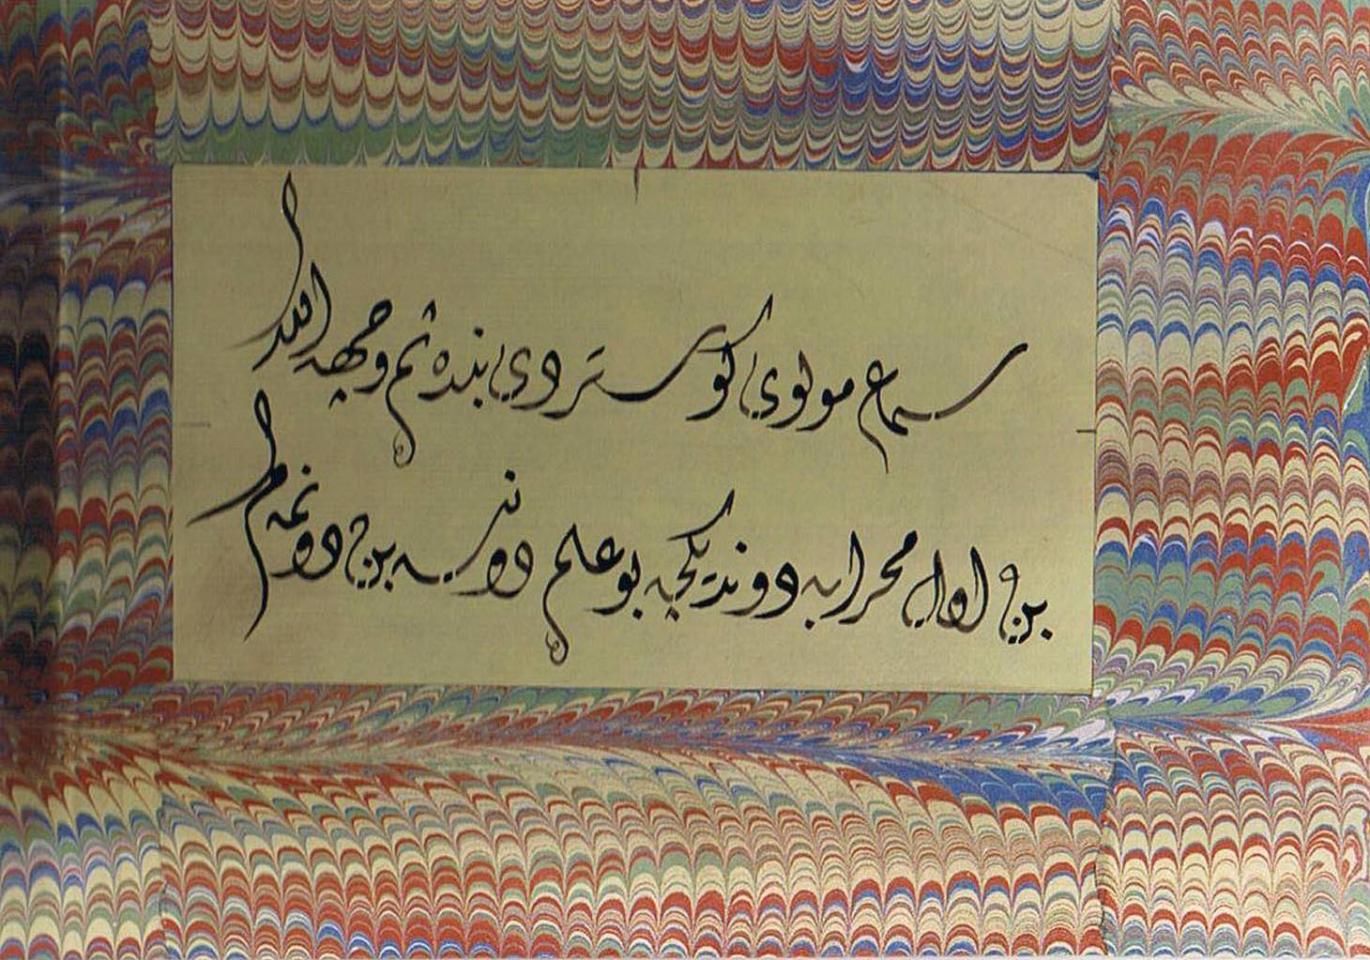 سماع مولوی كوستردی بنده ثم وجه الله
بن اول محرابه دوندیكجه بو علم دونسه بن دونمه م